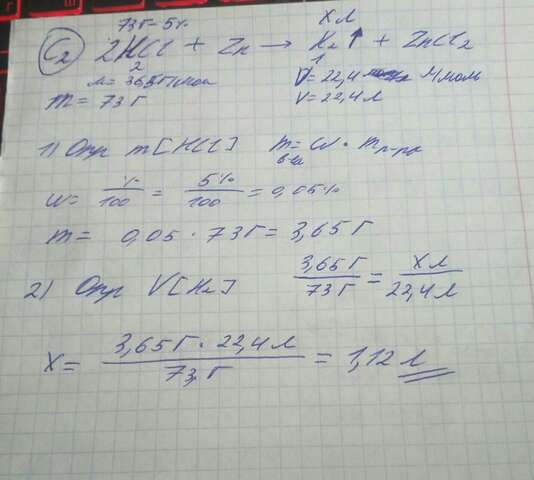 73г-5% Xл
C2 2HCl + Zn → H2↑ + ZnCl2
2 1
M = 36,5 г/моль V = 22,4 л/моль
m = 73 г V = 22,4 л
1) Опр m[HCl] m в-ва = ω · m р-ра
ω = % / 100 = 5% / 100 = 0,05%
m = 0,05 · 73г = 3,65 г
2) Опр V[H2] 3,65 г / 73 г = X л / 22,4 л
X = 3,65 г · 22,4 л / 73, г = 1,12 л